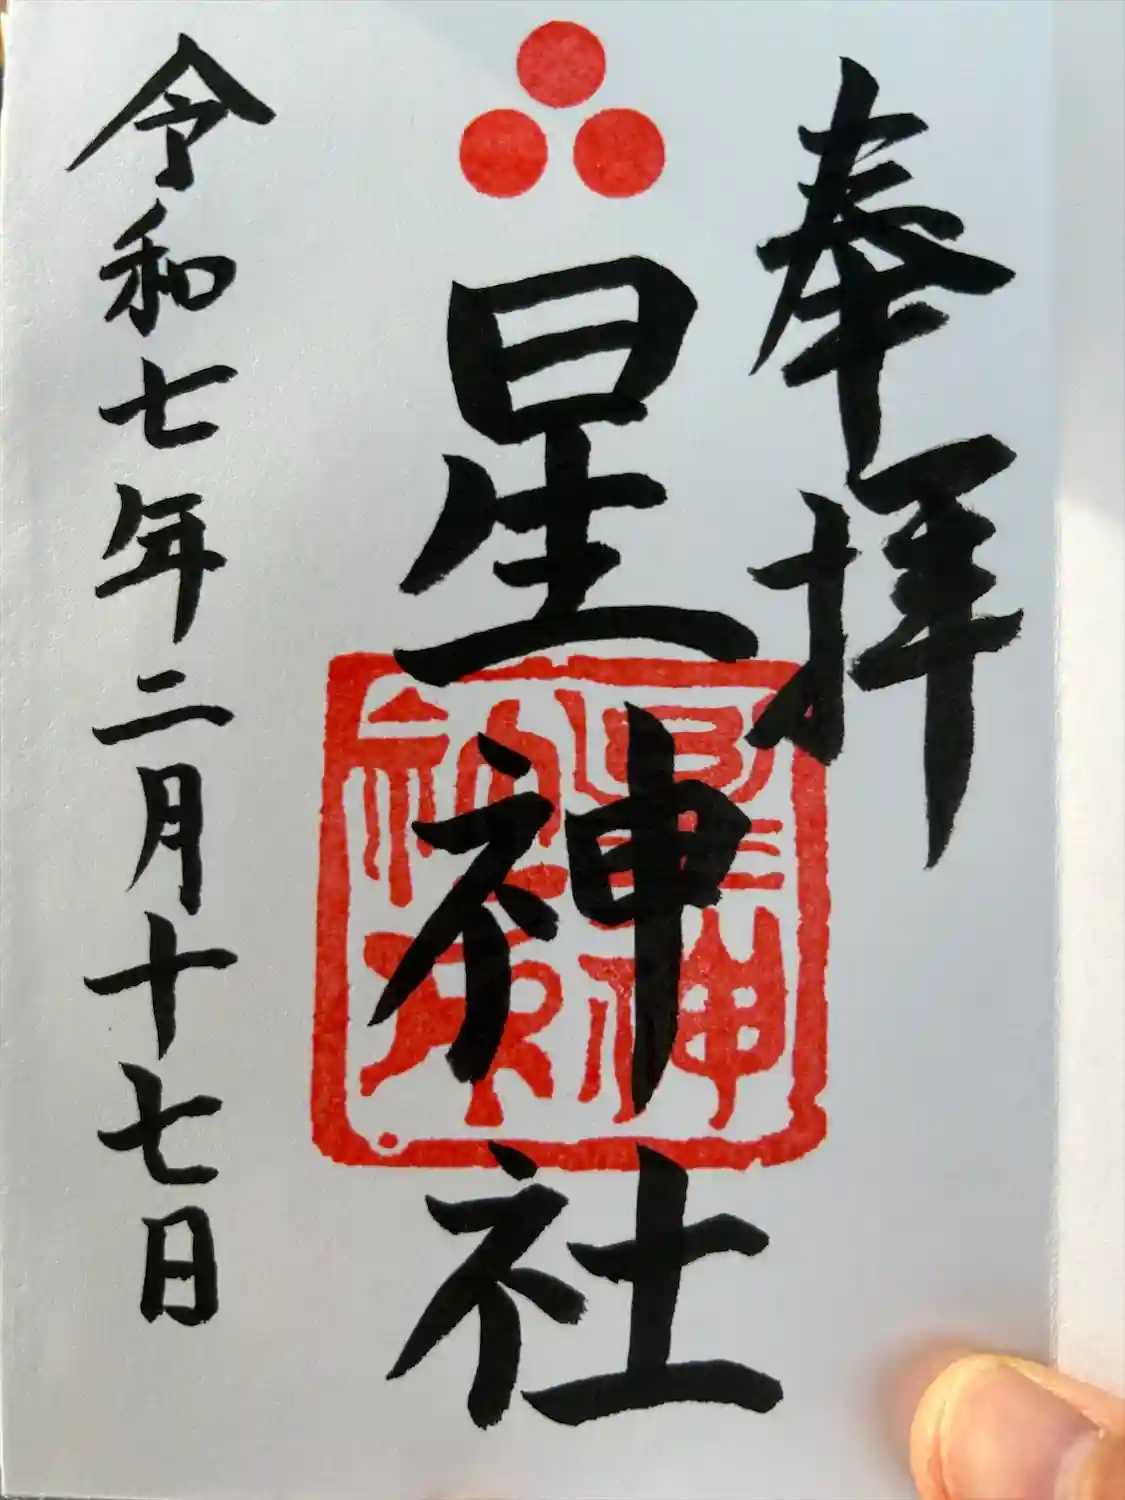 奉拝
星神社
令和七年二月十七日